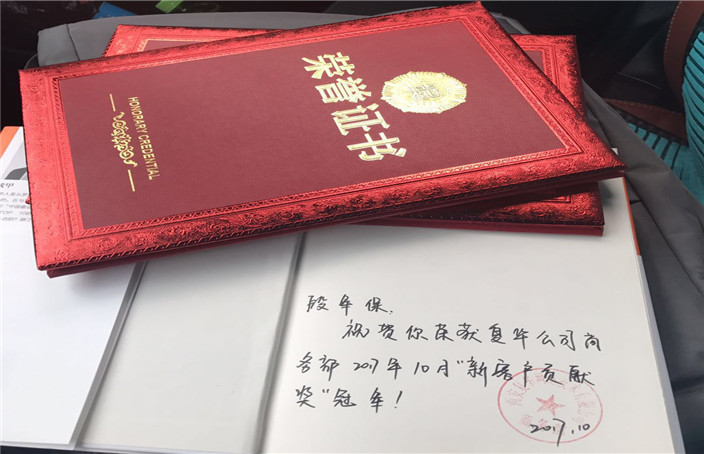 荣誉证书
HONORARY CREDENTIAL
段年保,
祝贺你荣获复华公司商
务部2017年10月"新客户贡献
奖"冠军!
2017.10